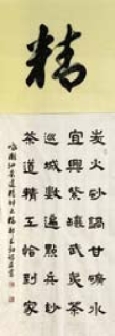 精
炭火砂鍋甘礦水
宜興紫罐武夷茶
巡城數遍點兵妙
茶道精工恰到家